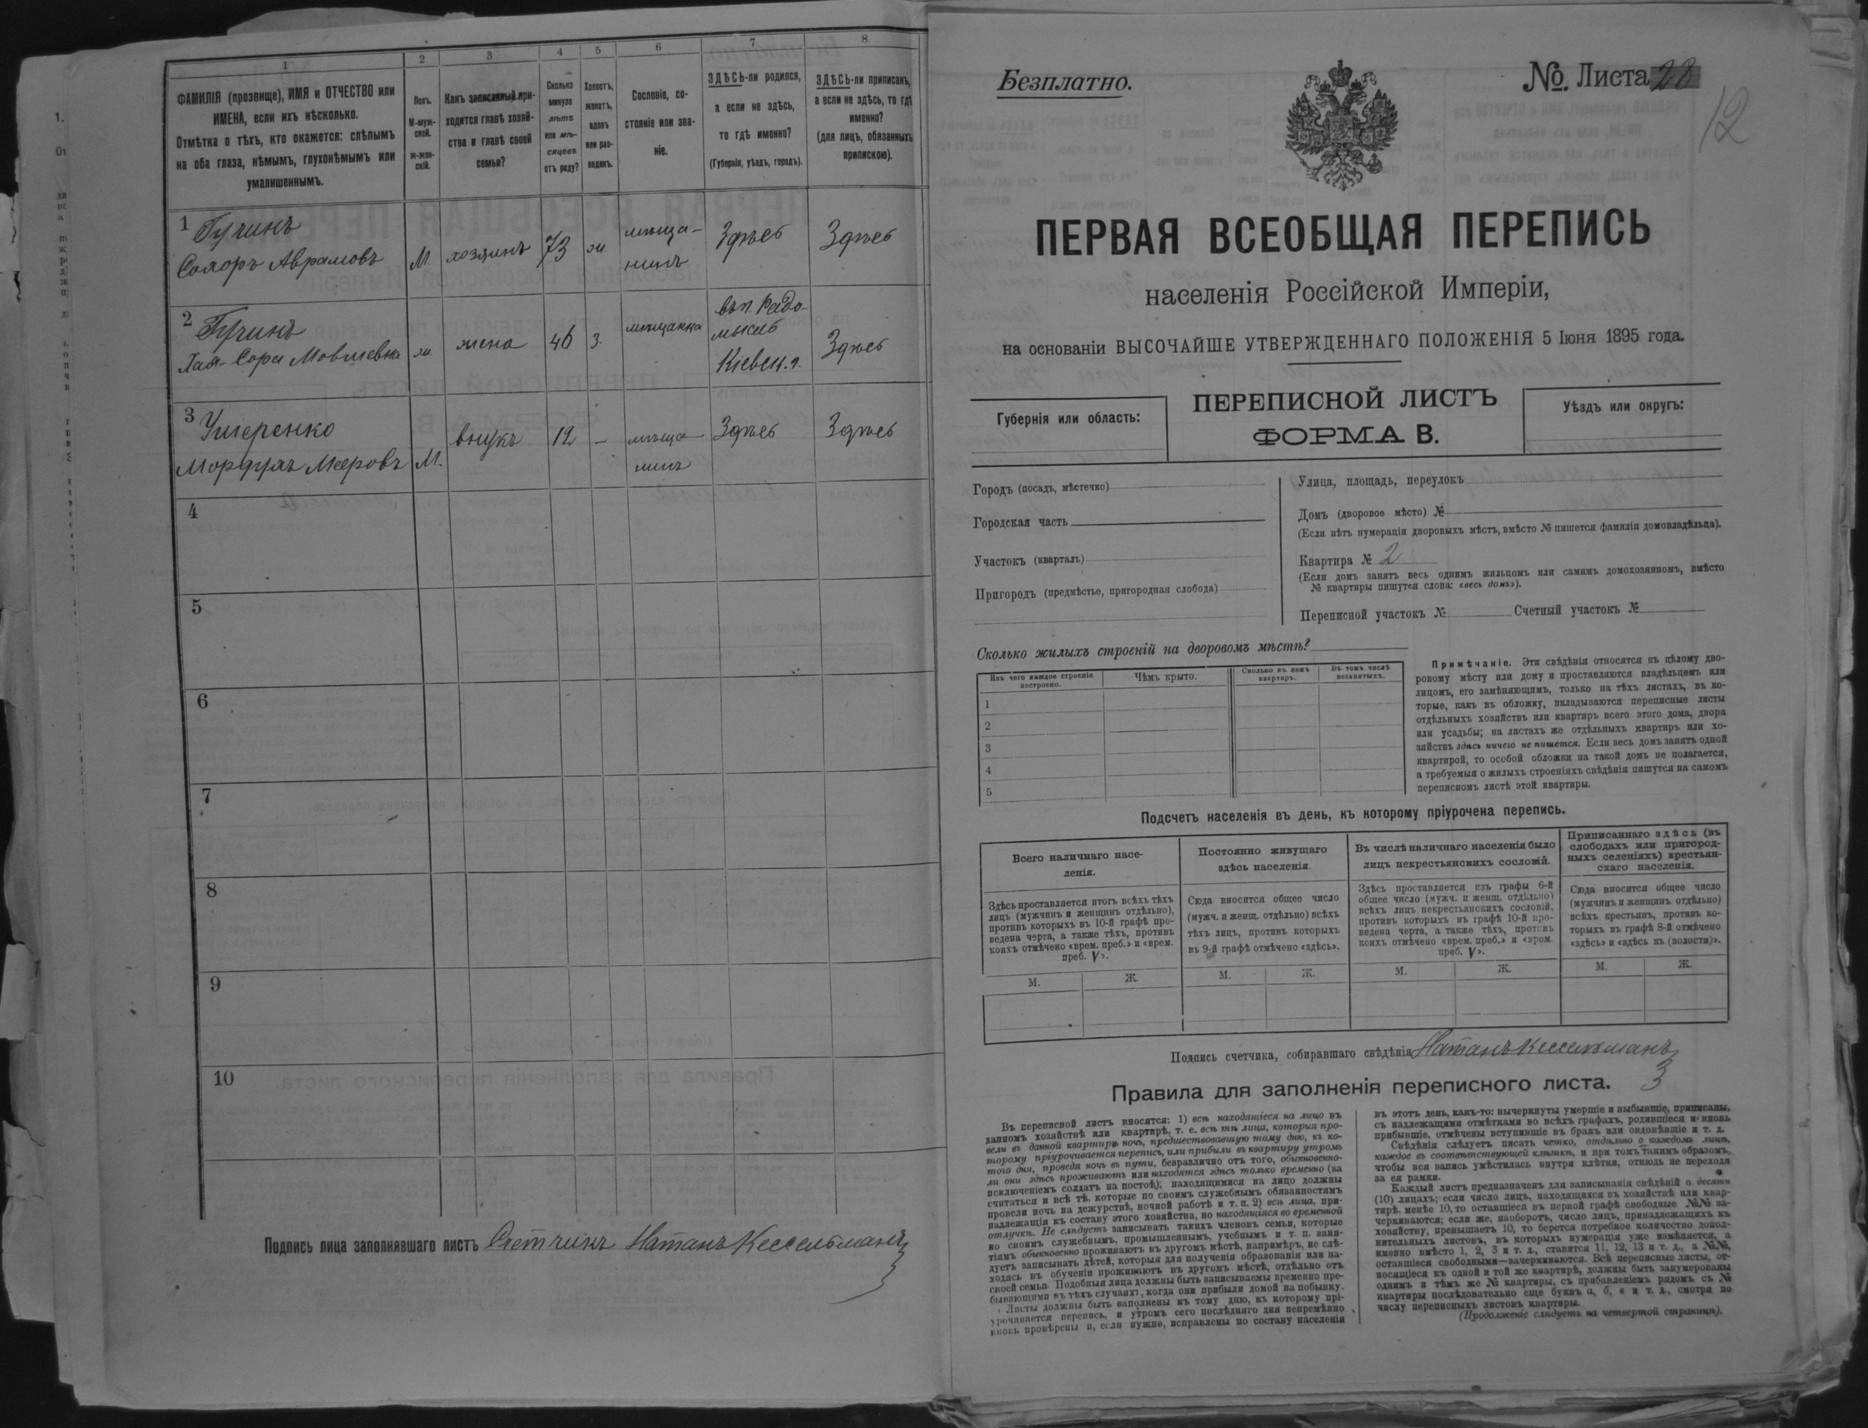 1
2
3
4
5
6
7
8
ФАМИЛІЯ (прозвище), ИМЯ и ОТЧЕСТВО или
ИМЕНА, если ихъ нѣсколько.
Отмѣтка о тѣхъ, кто окажется: слѣпымъ
на оба глаза, нѣмымъ, глухонѣмымъ или
умалишеннымъ.
Полъ.
М-муж-
ской.
ж-жен-
скій.
Какъ записанный при-
ходится главѣ хозяй-
ства и главѣ своей
семьи?
Сколько
минуло
лѣтъ
или мѣ-
сяцевъ
отъ роду?
Холостъ,
женатъ,
вдовъ
или раз-
веденъ.
Сословіе, со-
стояніе или зва-
ніе.
ЗДѢСЬ-ли родился,
а если не здѣсь,
то гдѣ именно?
(Губернія, уѣздъ, городъ).
ЗДѢСЬ-ли приписанъ,
а если не здѣсь, то гдѣ
именно?
(для лицъ, обязанныхъ
припискою).
1
Авраамовъ
М
хозяинъ
73
ж
мѣща-
нинъ
Здѣсь
Здѣсь
2
Хая-Сора Мовшевна
ж.
жена
46
з.
мѣщанка
Радо-
мысль
Кіевск. г.
Здѣсь
3
Умеренко
Мееровъ
М.
внукъ
12
–
мѣща-
нинъ
Здѣсь
Здѣсь
4
5
6
7
8
9
10
Подпись лица заполнявшаго листъ Счетчикъ Натанъ Кессельманъ
Безплатно.
№ Листа 28
12
ПЕРВАЯ ВСЕОБЩАЯ ПЕРЕПИСЬ
населенія Россійской Имперіи,
на основаніи ВЫСОЧАЙШЕ УТВЕРЖДЕННАГО ПОЛОЖЕНІЯ 5 Іюня 1895 года.
Губернія или область:
ПЕРЕПИСНОЙ ЛИСТЪ
ФОРМА В.
Уѣздъ или округъ:
Городъ (посадъ, мѣстечко)
Городская часть
Участокъ (кварталъ)
Пригородъ (предмѣстье, пригородная слобода)
Улица, площадь, переулокъ
Домъ (дворовое мѣсто) №
(Если нѣтъ нумераціи дворовыхъ мѣстъ, вмѣсто № пишется фамилія домовладѣльца).
Квартира № 2
(Если домъ занятъ весь однимъ жильцомъ или самимъ домохозяиномъ, вмѣсто
№ квартиры пишутся слова: «весь домъ»).
Переписной участокъ № Счетный участокъ №
Сколько жилыхъ строеній на дворовомъ мѣстѣ?
Изъ чего каждое строеніе
построено.
Чѣмъ крыто.
Сколько въ немъ
квартиръ.
Въ томъ числѣ
незанятыхъ.
1
2
3
4
5
Примѣчаніе. Эти свѣдѣнія относятся къ цѣлому дво-
ровому мѣсту или дому и проставляются владѣльцемъ или
лицомъ, его замѣняющимъ, только на тѣхъ листахъ, въ ко-
торые, какъ въ обложку, вкладываются переписные листы
отдѣльныхъ хозяйствъ или квартиръ всего этого дома, двора
или усадьбы; на листахъ же отдѣльныхъ квартиръ или хо-
зяйствъ здѣсь ничего не пишется. Если весь домъ занятъ одной
квартирой, то особой обложки на такой домъ не полагается,
а требуемыя о жилыхъ строеніяхъ свѣдѣнія пишутся на самомъ
переписномъ листѣ этой квартиры.
Подсчетъ населенія въ день, къ которому пріурочена перепись.
Всего наличнаго насе-
ленія.
Постоянно живущаго
здѣсь населенія.
Въ числѣ наличнаго населенія было
лицъ некрестьянскихъ сословій.
Приписаннаго здѣсь (въ
слободахъ или пригород-
ныхъ селеніяхъ) крестьян-
скаго населенія.
Здѣсь проставляется итогъ всѣхъ тѣхъ
лицъ (мужчинъ и женщинъ отдѣльно),
противъ которыхъ въ 10-й графѣ про-
ведена черта, а также тѣхъ, противъ
коихъ отмѣчено «врем. преб.» и «врем.
преб. V».
Сюда вносится общее число
(мужч. и женщ. отдѣльно) всѣхъ
тѣхъ лицъ, противъ которыхъ
въ 9-й графѣ отмѣчено «здѣсь».
Здѣсь проставляется изъ графы 6-й
общее число (мужч. и женщ. отдѣльно)
всѣхъ лицъ некрестьянскихъ сословій,
противъ которыхъ въ графѣ 10-й про-
ведена черта, а также тѣхъ, противъ
коихъ отмѣчено «врем. преб.» и «врем.
преб. V».
Сюда вносится общее число
(мужчинъ и женщинъ отдѣльно)
всѣхъ крестьянъ, противъ ко-
торыхъ въ графѣ 8-й отмѣчено
«здѣсь» и «здѣсь къ (волости)».
М.
Ж.
М.
Ж.
М.
Ж.
М.
Ж.
Подпись счетчика, собиравшаго свѣдѣнія Натанъ Кессельманъ
Правила для заполненія переписного листа.
Въ переписной листъ вносятся: 1) всѣ находящіеся на лицо въ
данномъ хозяйствѣ или квартирѣ, т. е. всѣ тѣ лица, которыя про-
вели въ данной квартирѣ ночь, предшествовавшую тому дню, къ ко-
торому пріурочивается перепись, или прибыли въ квартиру утромъ
того дня, проведя ночь въ пути, безразлично отъ того, обыкновенно-
ли они здѣсь проживаютъ или находятся здѣсь только временно (за
исключеніемъ солдатъ на постоѣ); находящимися на лицо должны
считаться и всѣ тѣ, которые по своимъ служебнымъ обязанностямъ
провели ночь на дежурствѣ, ночной работѣ и т. п. 2) всѣ лица, при-
надлежащія къ составу этого хозяйства, но находящіяся во временной
отлучкѣ. Не слѣдуетъ записывать такихъ членовъ семьи, которые
по своимъ служебнымъ, промышленнымъ, учебнымъ и т. п. заня-
тіямъ обыкновенно проживаютъ въ другомъ мѣстѣ, напримѣръ, не слѣ-
дуетъ записывать дѣтей, которыя для полученія образованія или на-
ходясь въ обученіи проживаютъ въ другомъ мѣстѣ, отдѣльно отъ
своей семьи. Подобныя лица должны быть записываемы временно пре-
бывающими въ тѣхъ случаяхъ, когда они прибыли домой на побывку.
Листы должны быть заполнены къ тому дню, къ которому прі-
урочивается перепись, и утромъ сего послѣдняго дня непремѣнно
вновь провѣрены и, если нужно, исправлены по составу населенія
въ этотъ день, какъ-то: вычеркнуты умершіе и выбывшіе, приписаны,
съ надлежащими отмѣтками во всѣхъ графахъ, родившіеся и вновь
прибывшіе, отмѣчены вступившіе въ бракъ или овдовѣвшіе и т. д.
Свѣдѣнія слѣдуетъ писать четко, отдѣльно о каждомъ лицѣ,
каждое въ соотвѣтствующей клѣткѣ, и при томъ такимъ образомъ,
чтобы вся запись умѣстилась внутри клѣтки, отнюдь не переходя
за ея рамки.
Каждый листъ предназначенъ для записыванія свѣдѣній о десяти
(10) лицахъ; если число лицъ, находящихся въ хозяйствѣ или квар-
тирѣ, менѣе 10, то оставшіеся въ первой графѣ свободные №№ за-
черкиваются; если же, наоборотъ, число лицъ, принадлежащихъ къ
хозяйству, превышаетъ 10, то берется потребное количество допол-
нительныхъ листовъ, въ которыхъ нумерація уже измѣняется, а
именно вмѣсто 1, 2, 3 и т. д., ставится 11, 12, 13 и т. д., а №№,
оставшіеся свободными—зачеркиваются. Всѣ переписные листы, от-
носящіеся къ одной и той же квартирѣ, должны быть занумерованы
однимъ и тѣмъ же № квартиры, съ прибавленіемъ рядомъ съ №
квартиры послѣдовательно еще буквъ а, б, в и т. д., смотря по
числу переписныхъ листовъ квартиры.
(Продолженіе слѣдуетъ на четвертой страницѣ).